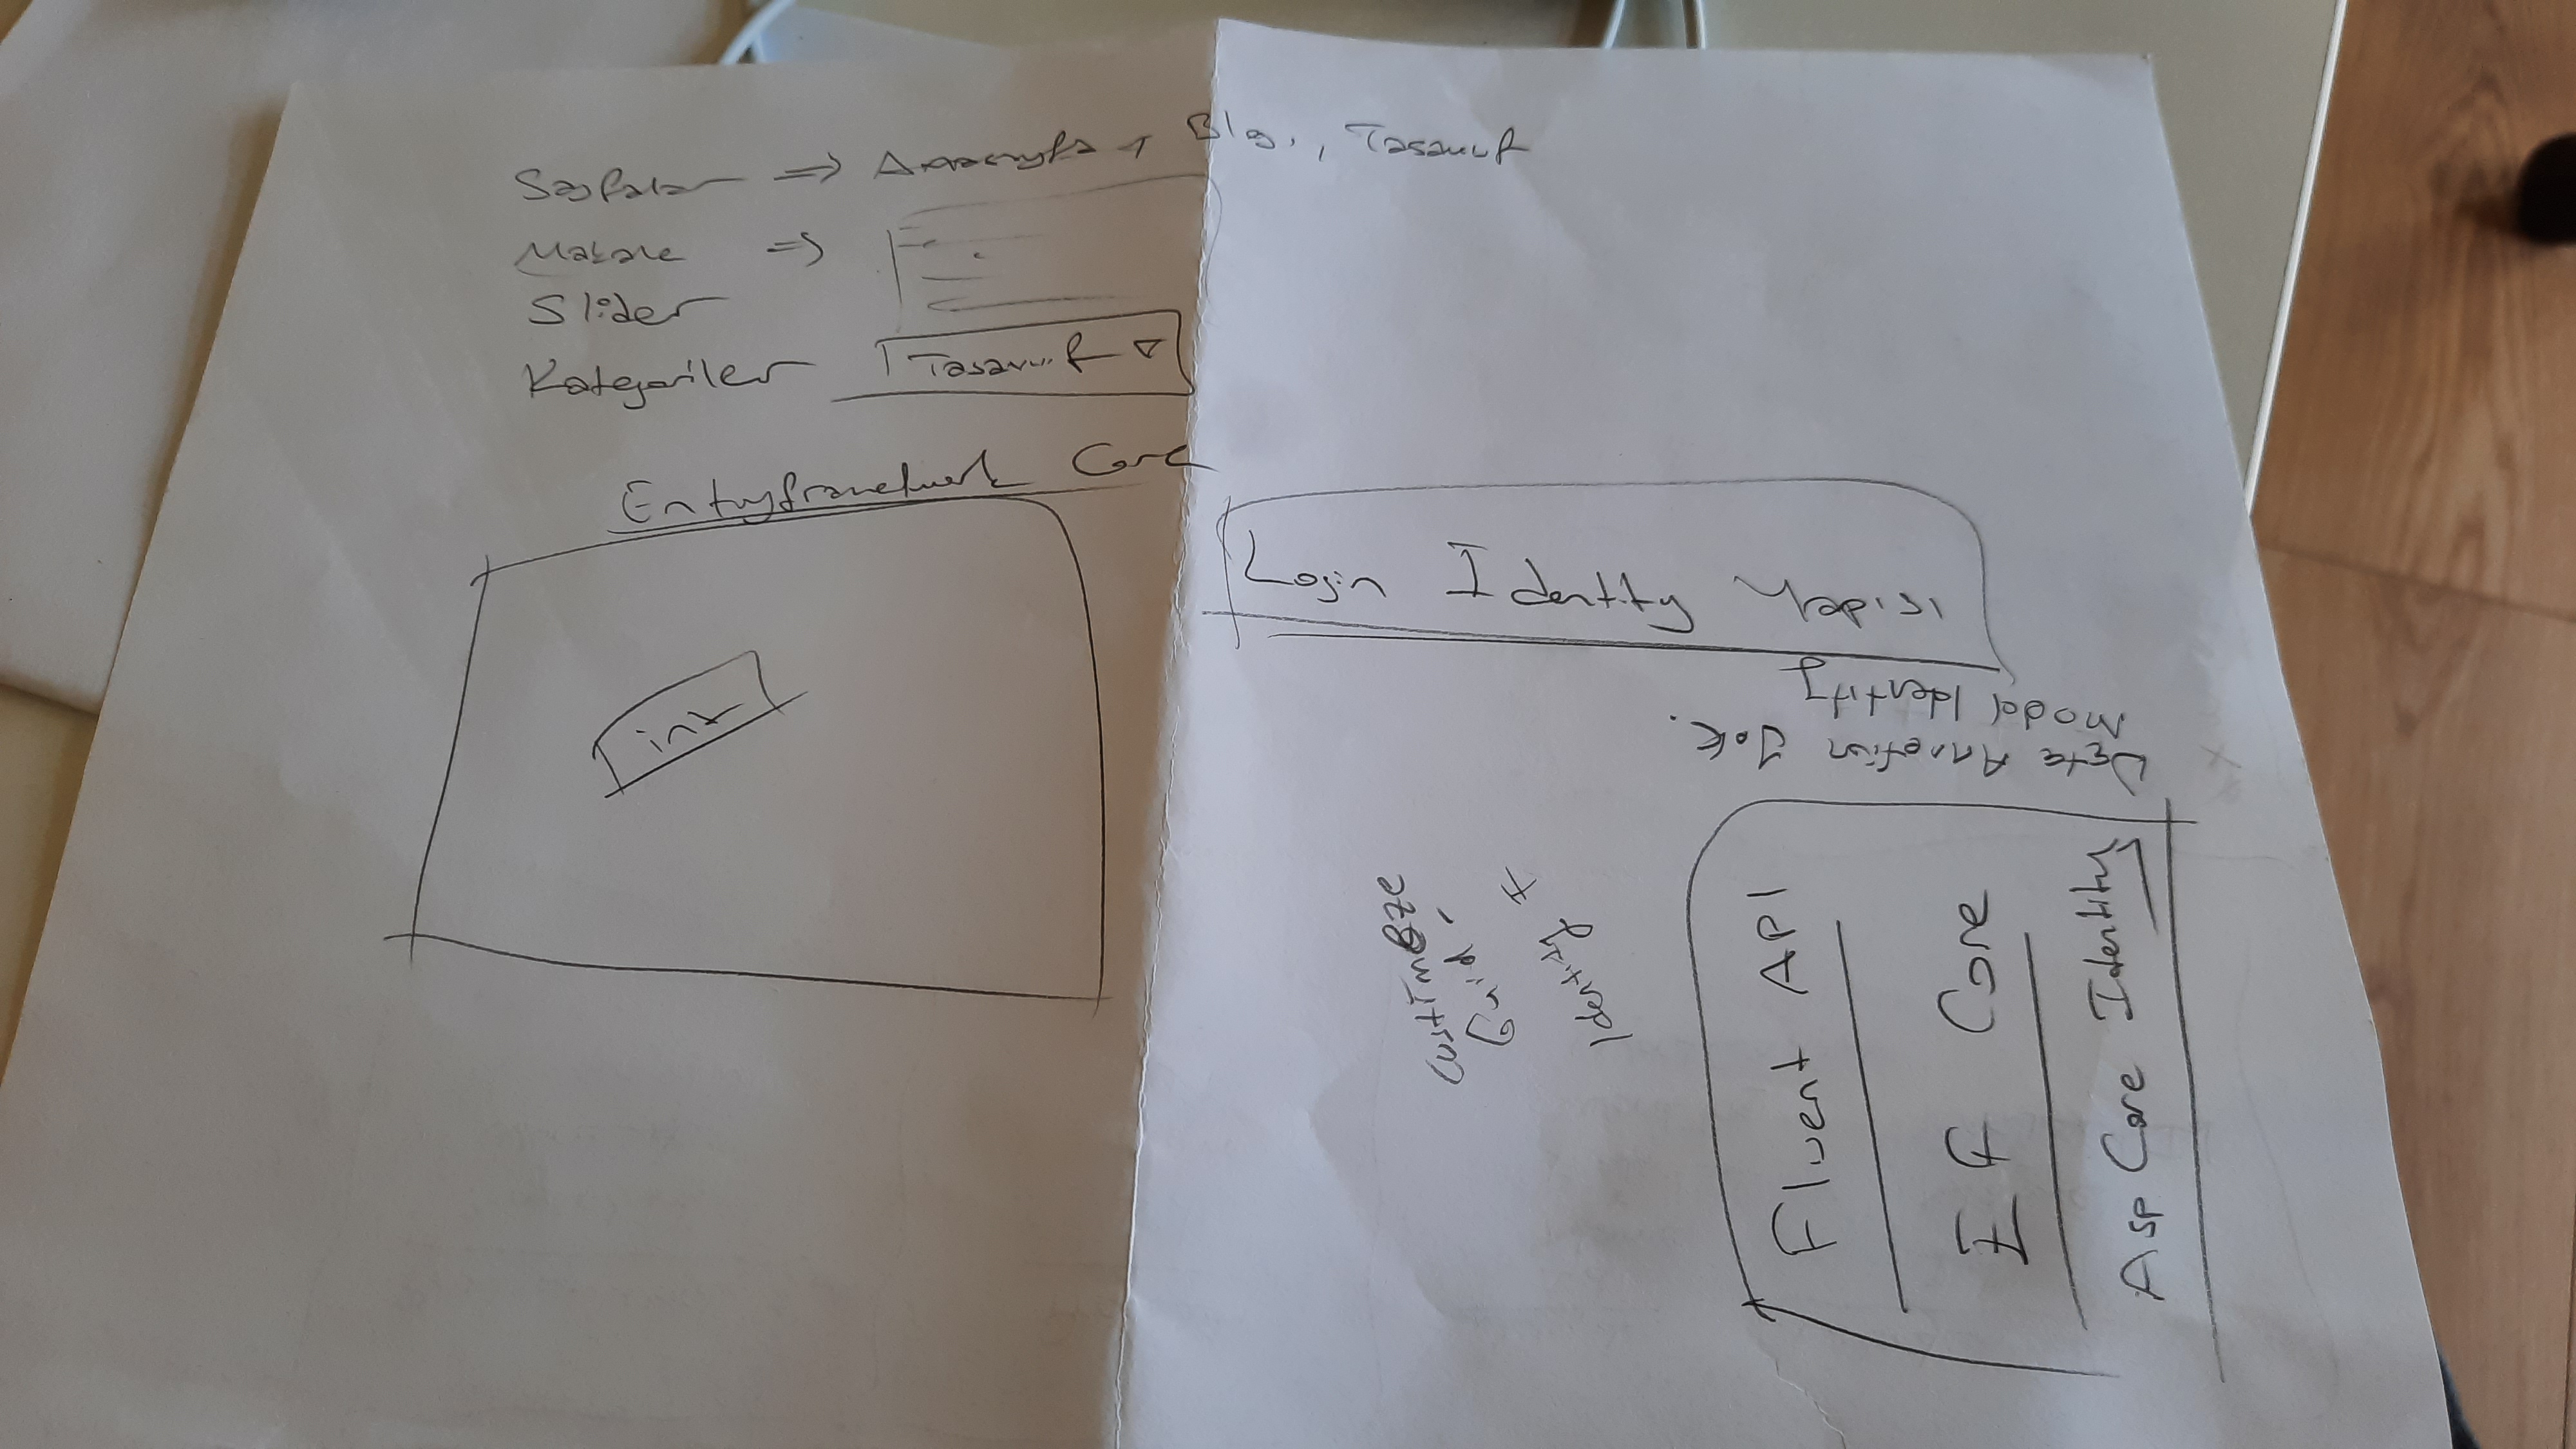 Sayfalar => Anasayfa, Blg., Tasavvuf
Makale =>
Slider
Kategoriler Tasavvuf
Entityframework Core
int
Login Identity Yapısı
Data Annotion Yok.
Model Identity
Custimize
Guid,
Identity
Fluent API
EF Core
Asp Core Identity